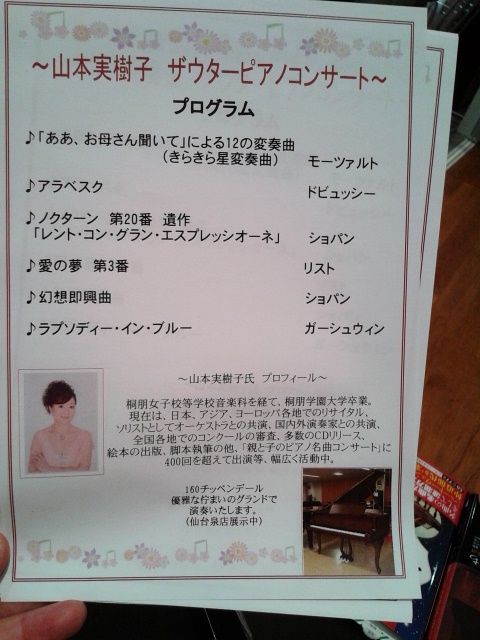 ～山本実樹子 ザウターピアノコンサート～
プログラム
♪「ああ、お母さん聞いて」による12の変奏曲
（きらきら星変奏曲） モーツァルト
♪アラベスク ドビュッシー
♪ノクターン 第20番 遺作
「レント・コン・グラン・エスプレッシオーネ」 ショパン
♪愛の夢 第3番 リスト
♪幻想即興曲 ショパン
♪ラプソディー・イン・ブルー ガーシュウィン
～山本実樹子氏 プロフィール～
桐朋女子校等学校音楽科を経て、桐朋学園大学卒業。
現在は、日本、アジア、ヨーロッパ各地でのリサイタル、
ソリストとしてオーケストラとの共演、国内外演奏家との共演、
全国各地でのコンクールの審査、多数のCDリリース、
絵本の出版、脚本執筆の他、「親と子のピアノ名曲コンサート」に
400回を超えて出演等、幅広く活動中。
160チッペンデール
優雅な佇まいのグランドで
演奏いたします。
（仙台泉店展示中）